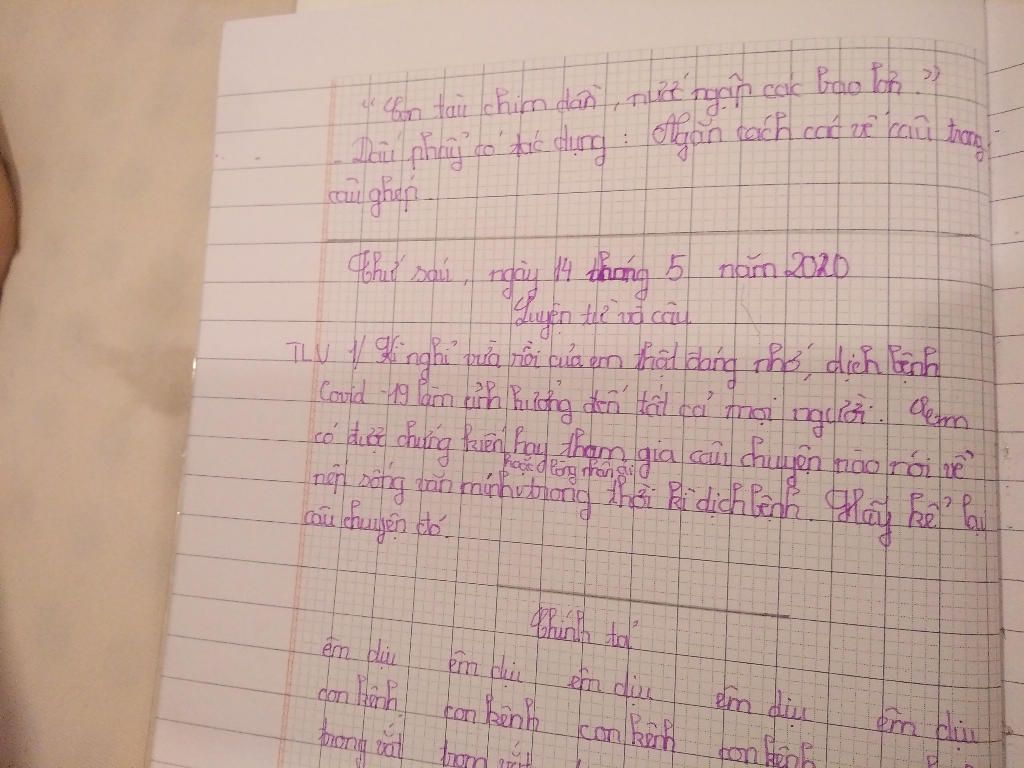 "Con tàu chìm dần, nước ngập các bao lơn."
- Dấu phẩy có tác dụng: Ngăn cách các vế câu trong
câu ghép.
Thứ sáu, ngày 14 tháng 5 năm 2020
Luyện từ và câu
TLV 1/ Kì nghỉ vừa rồi của em thật đáng nhớ, dịch bệnh
Covid -19 làm ảnh hưởng đến tất cả mọi người. Em
có được chứng kiến hay tham gia câu chuyện nào nói về
hoặc phòng
nếp sống văn minh trong thời kì dịch bệnh. Hãy kể lại
câu chuyện đó.
Chính tả
êm dịu êm dịu êm dịu êm dịu êm dịu
con kênh con kênh con kênh con kênh
trong vắt trong vắt